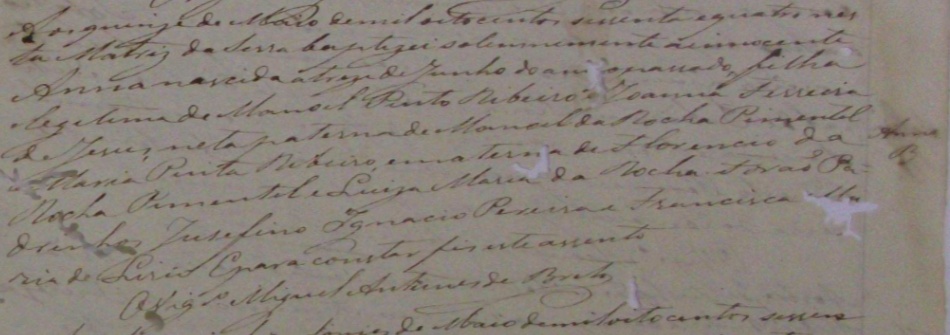 Aos quinze de Maio de mil oitocentos sessenta e quatro nes
ta Matriz da Serra baptizei solemnemente a innocente
Anna nascida a treze de Junho do anno passado, filha
legitima de Manoel Pinto Ribeiro e Joanna Ferreira
de Jesus, neta paterna de Manoel da Rocha Pimentel
e Maria Pinta Ribeiro, e materna de Florencio da
Rocha Pimentel e Luiza Maria da Rocha. Forão Pa-
drinhos Jusefino Ignacio Pereira e Francisca Ma
ria de E para constar fis este assento
O Vigº Miguel Antunes de Brito
Anna
B
de Maio de mil oitocentos sessen